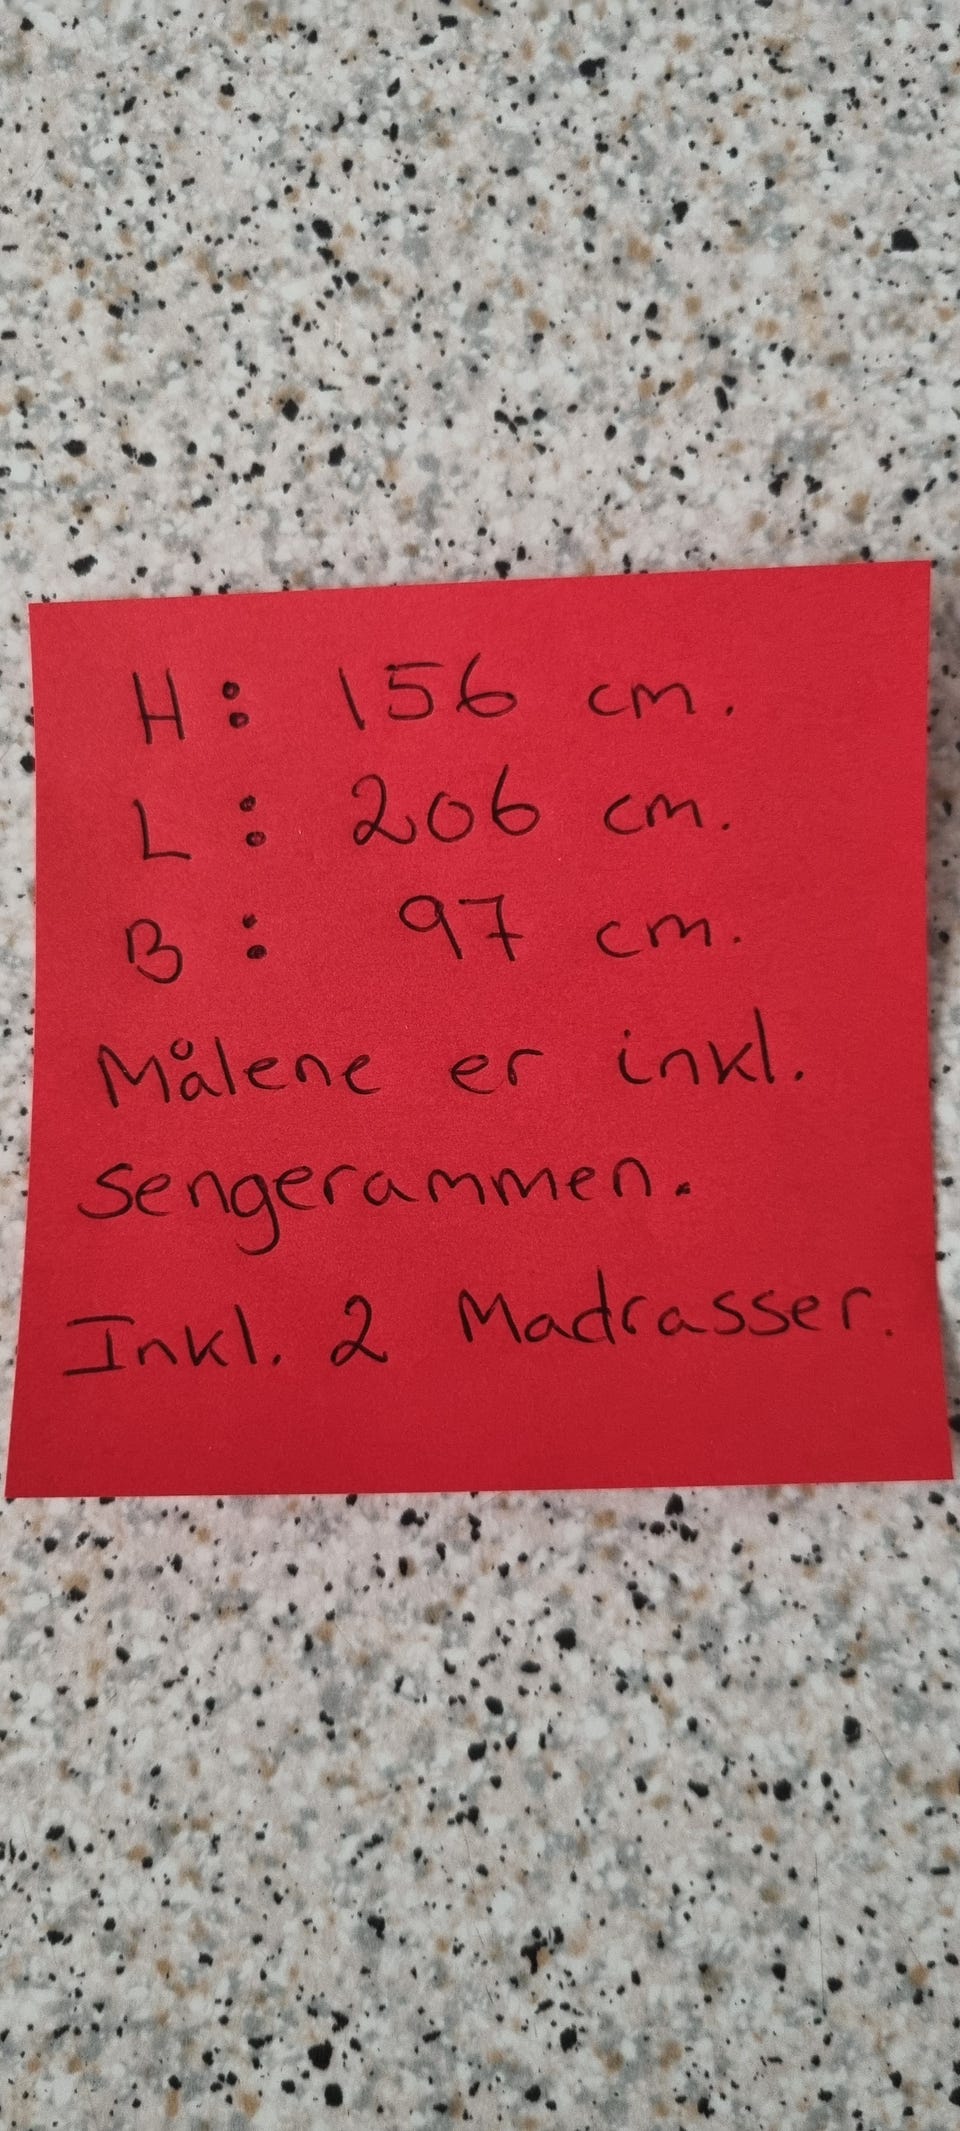 H: 156 cm.
L: 206 cm.
B: 97 cm.
Målene er inkl.
sengerammen.
Inkl. 2 Madrasser.